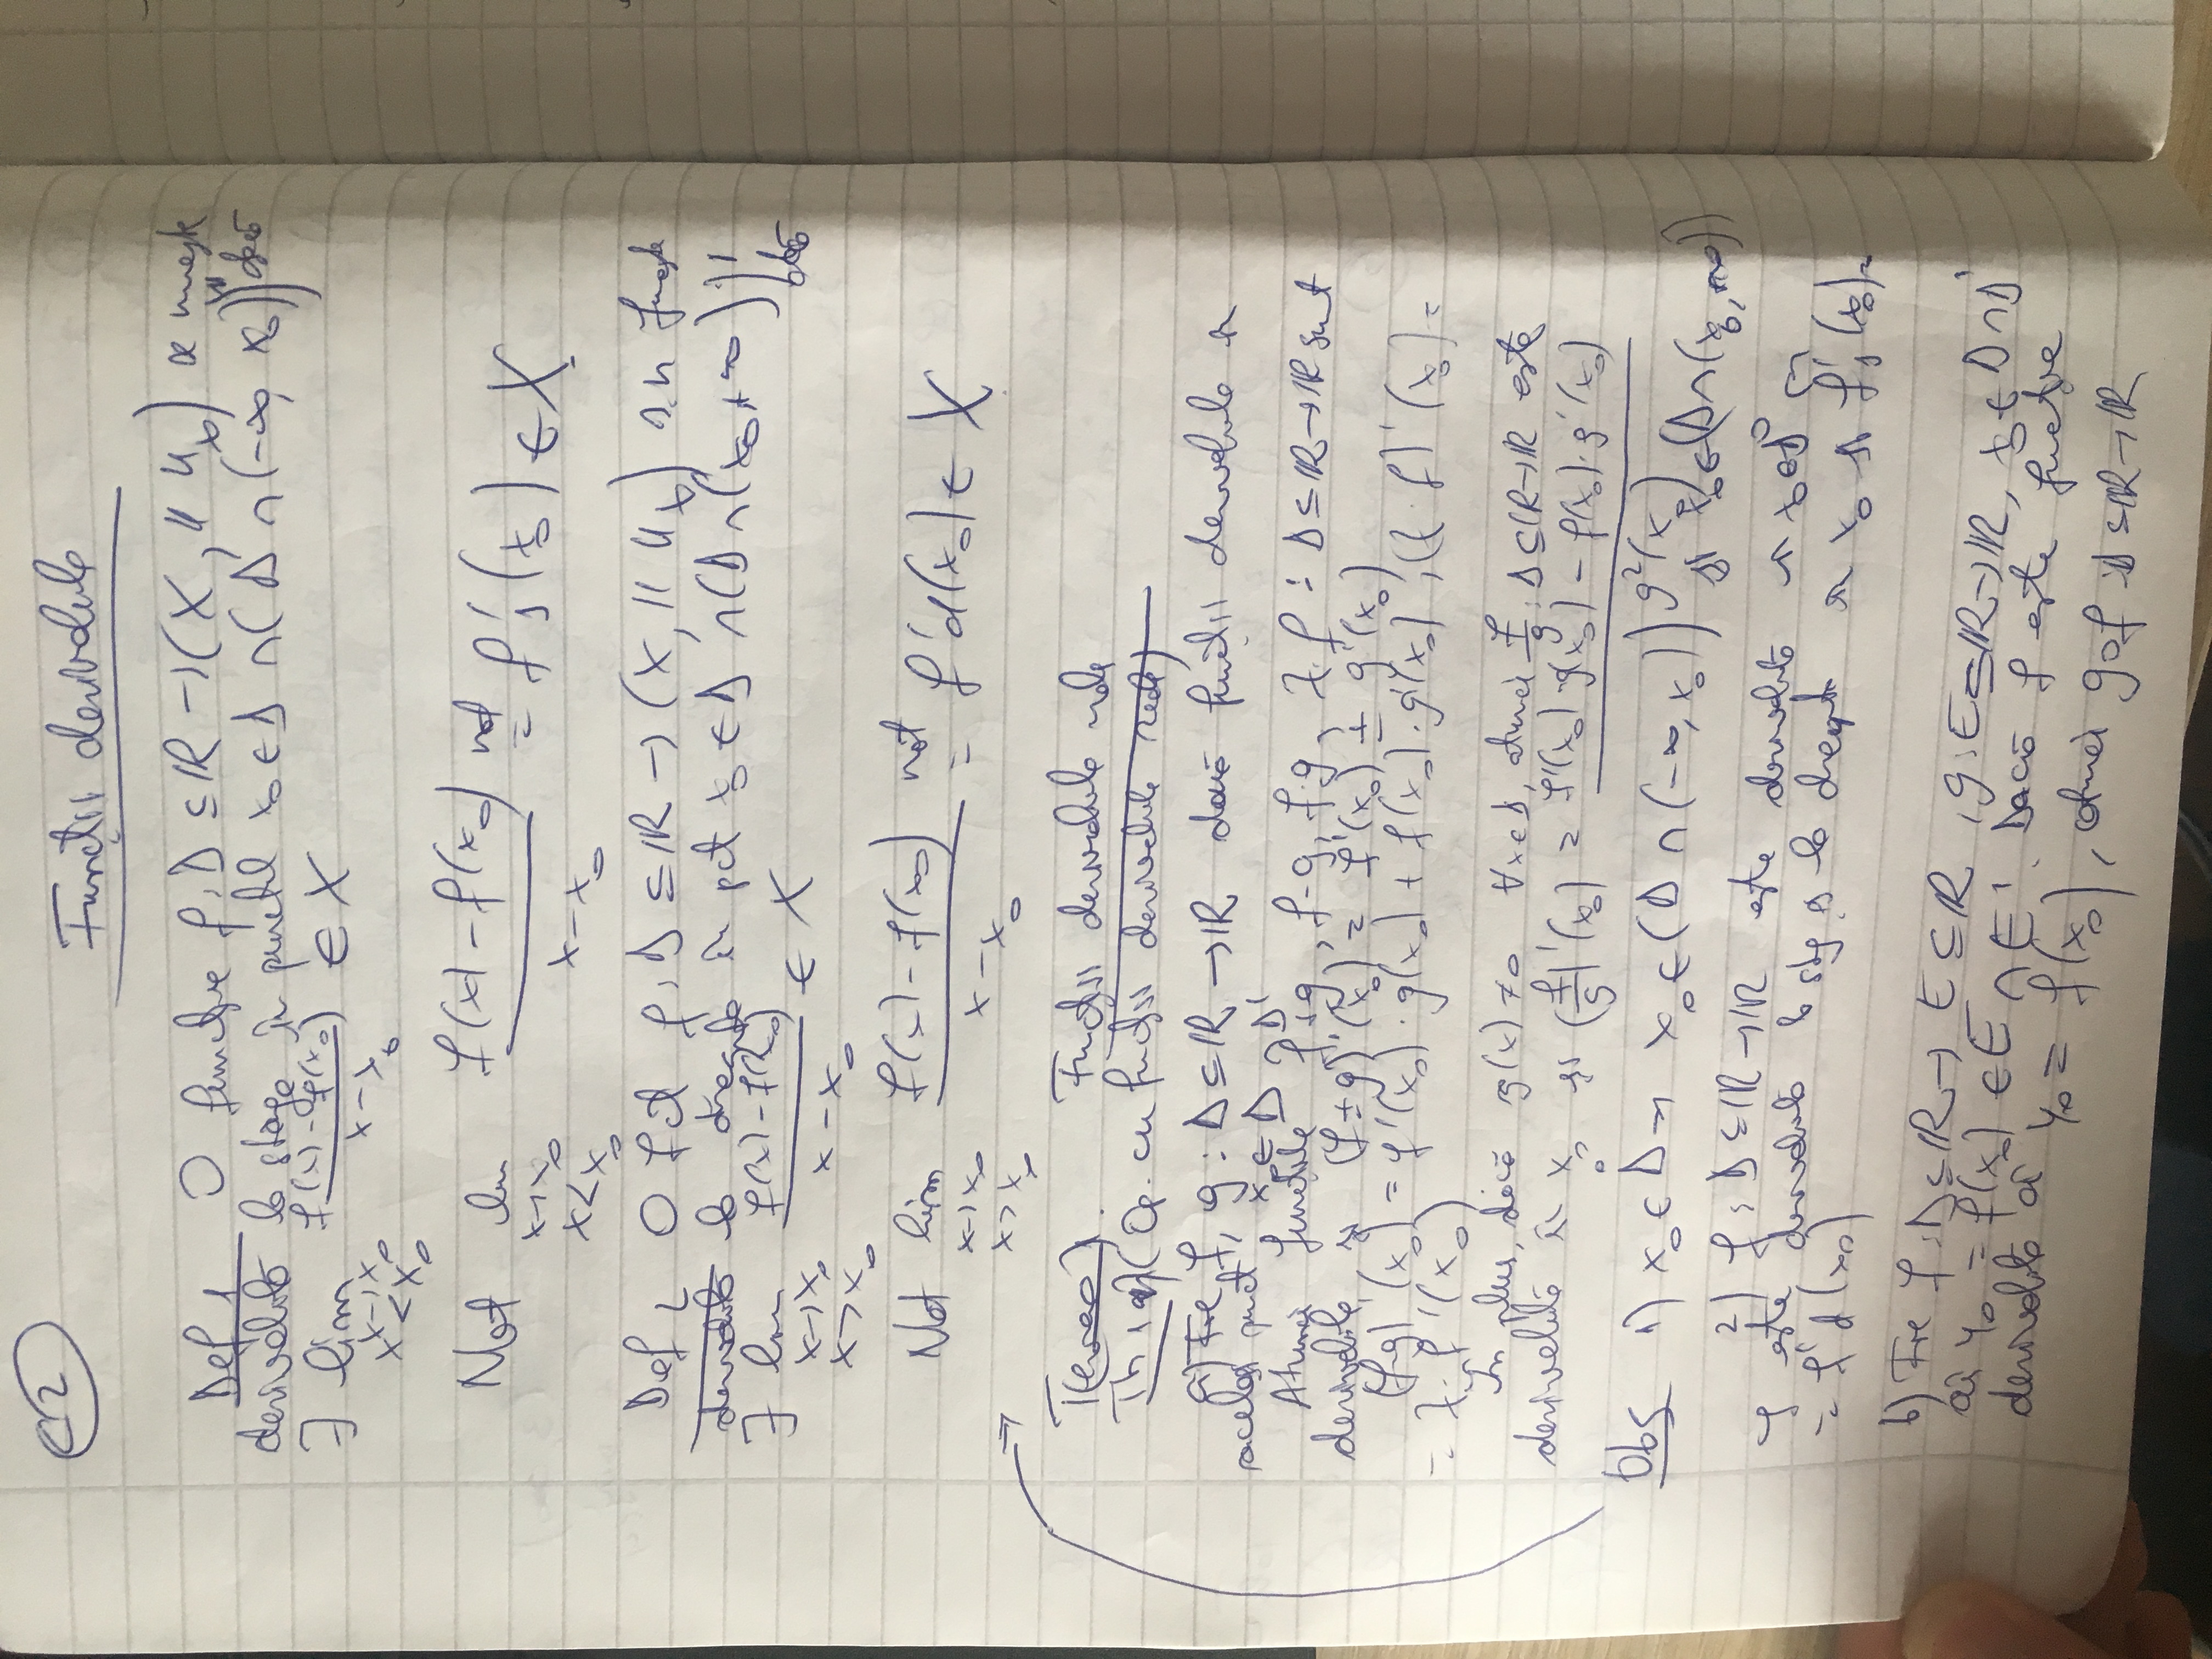 C2
Funcții derivabile
Def 1 O funcție f: D ⊆ ℝ → (X, ‖ ‖ₓ) se numește
derivabilă la stânga în punctul x₀ ∈ D ∩ (D ∩ (-∞, x₀))' dacă
∃ lim x→x₀ x<x₀ (f(x) - f(x₀))/(x - x₀) ∈ X
Not lim x→x₀ x<x₀ (f(x) - f(x₀))/(x - x₀) not= f's(x₀) ∈ X
Def 2 O fct f: D ⊆ ℝ → (X, ‖ ‖ₓ) s.n funcție
derivabilă la dreapta în pct x₀ ∈ D ∩ (D ∩ (x₀, +∞))' dacă
∃ lim x→x₀ x>x₀ (f(x) - f(x₀))/(x - x₀) ∈ X
Not lim x→x₀ x>x₀ (f(x) - f(x₀))/(x - x₀) not= f'd(x₀) ∈ X
Funcții derivabile reale
Th 1 (Op. cu funcții derivabile reale)
a) Fie f, g: D ⊆ ℝ → ℝ două funcții derivabile în
același punct x₀ ∈ D ∩ D'
Atunci funcțiile f+g, f-g, f·g, λ·f : D ⊆ ℝ → ℝ sunt
derivabile, și (f±g)'(x₀) = f'(x₀) ± g'(x₀)
(f·g)'(x₀) = f'(x₀)·g(x₀) + f(x₀)·g'(x₀), (λ·f)'(x₀) =
= λ·f'(x₀)
În plus, dacă g(x) ≠ 0 ∀x∈D, atunci f/g : D ⊆ ℝ → ℝ este
derivabilă în x₀ și (f/g)'(x₀) = (f'(x₀)·g(x₀) - f(x₀)·g'(x₀))/g²(x₀)
Obs 1) x₀ ∈ D̊ => x₀ ∈ (D ∩ (-∞, x₀))' și x₀ ∈ (D ∩ (x₀, +∞))'
2) f: D ⊆ ℝ → ℝ este derivabilă în x₀ ∈ D̊
f este derivabilă la stg și la dreapta în x₀ și f's(x₀) =
= f'd(x₀)
b) Fie f: D ⊆ ℝ → E ⊆ ℝ, g: E ⊆ ℝ → ℝ, x₀ ∈ D ∩ D'
aî y₀ = f(x₀) ∈ E ∩ E'. Dacă f este funcție
derivabilă aî y₀ = f(x₀), atunci g∘f : D ⊆ ℝ → ℝ